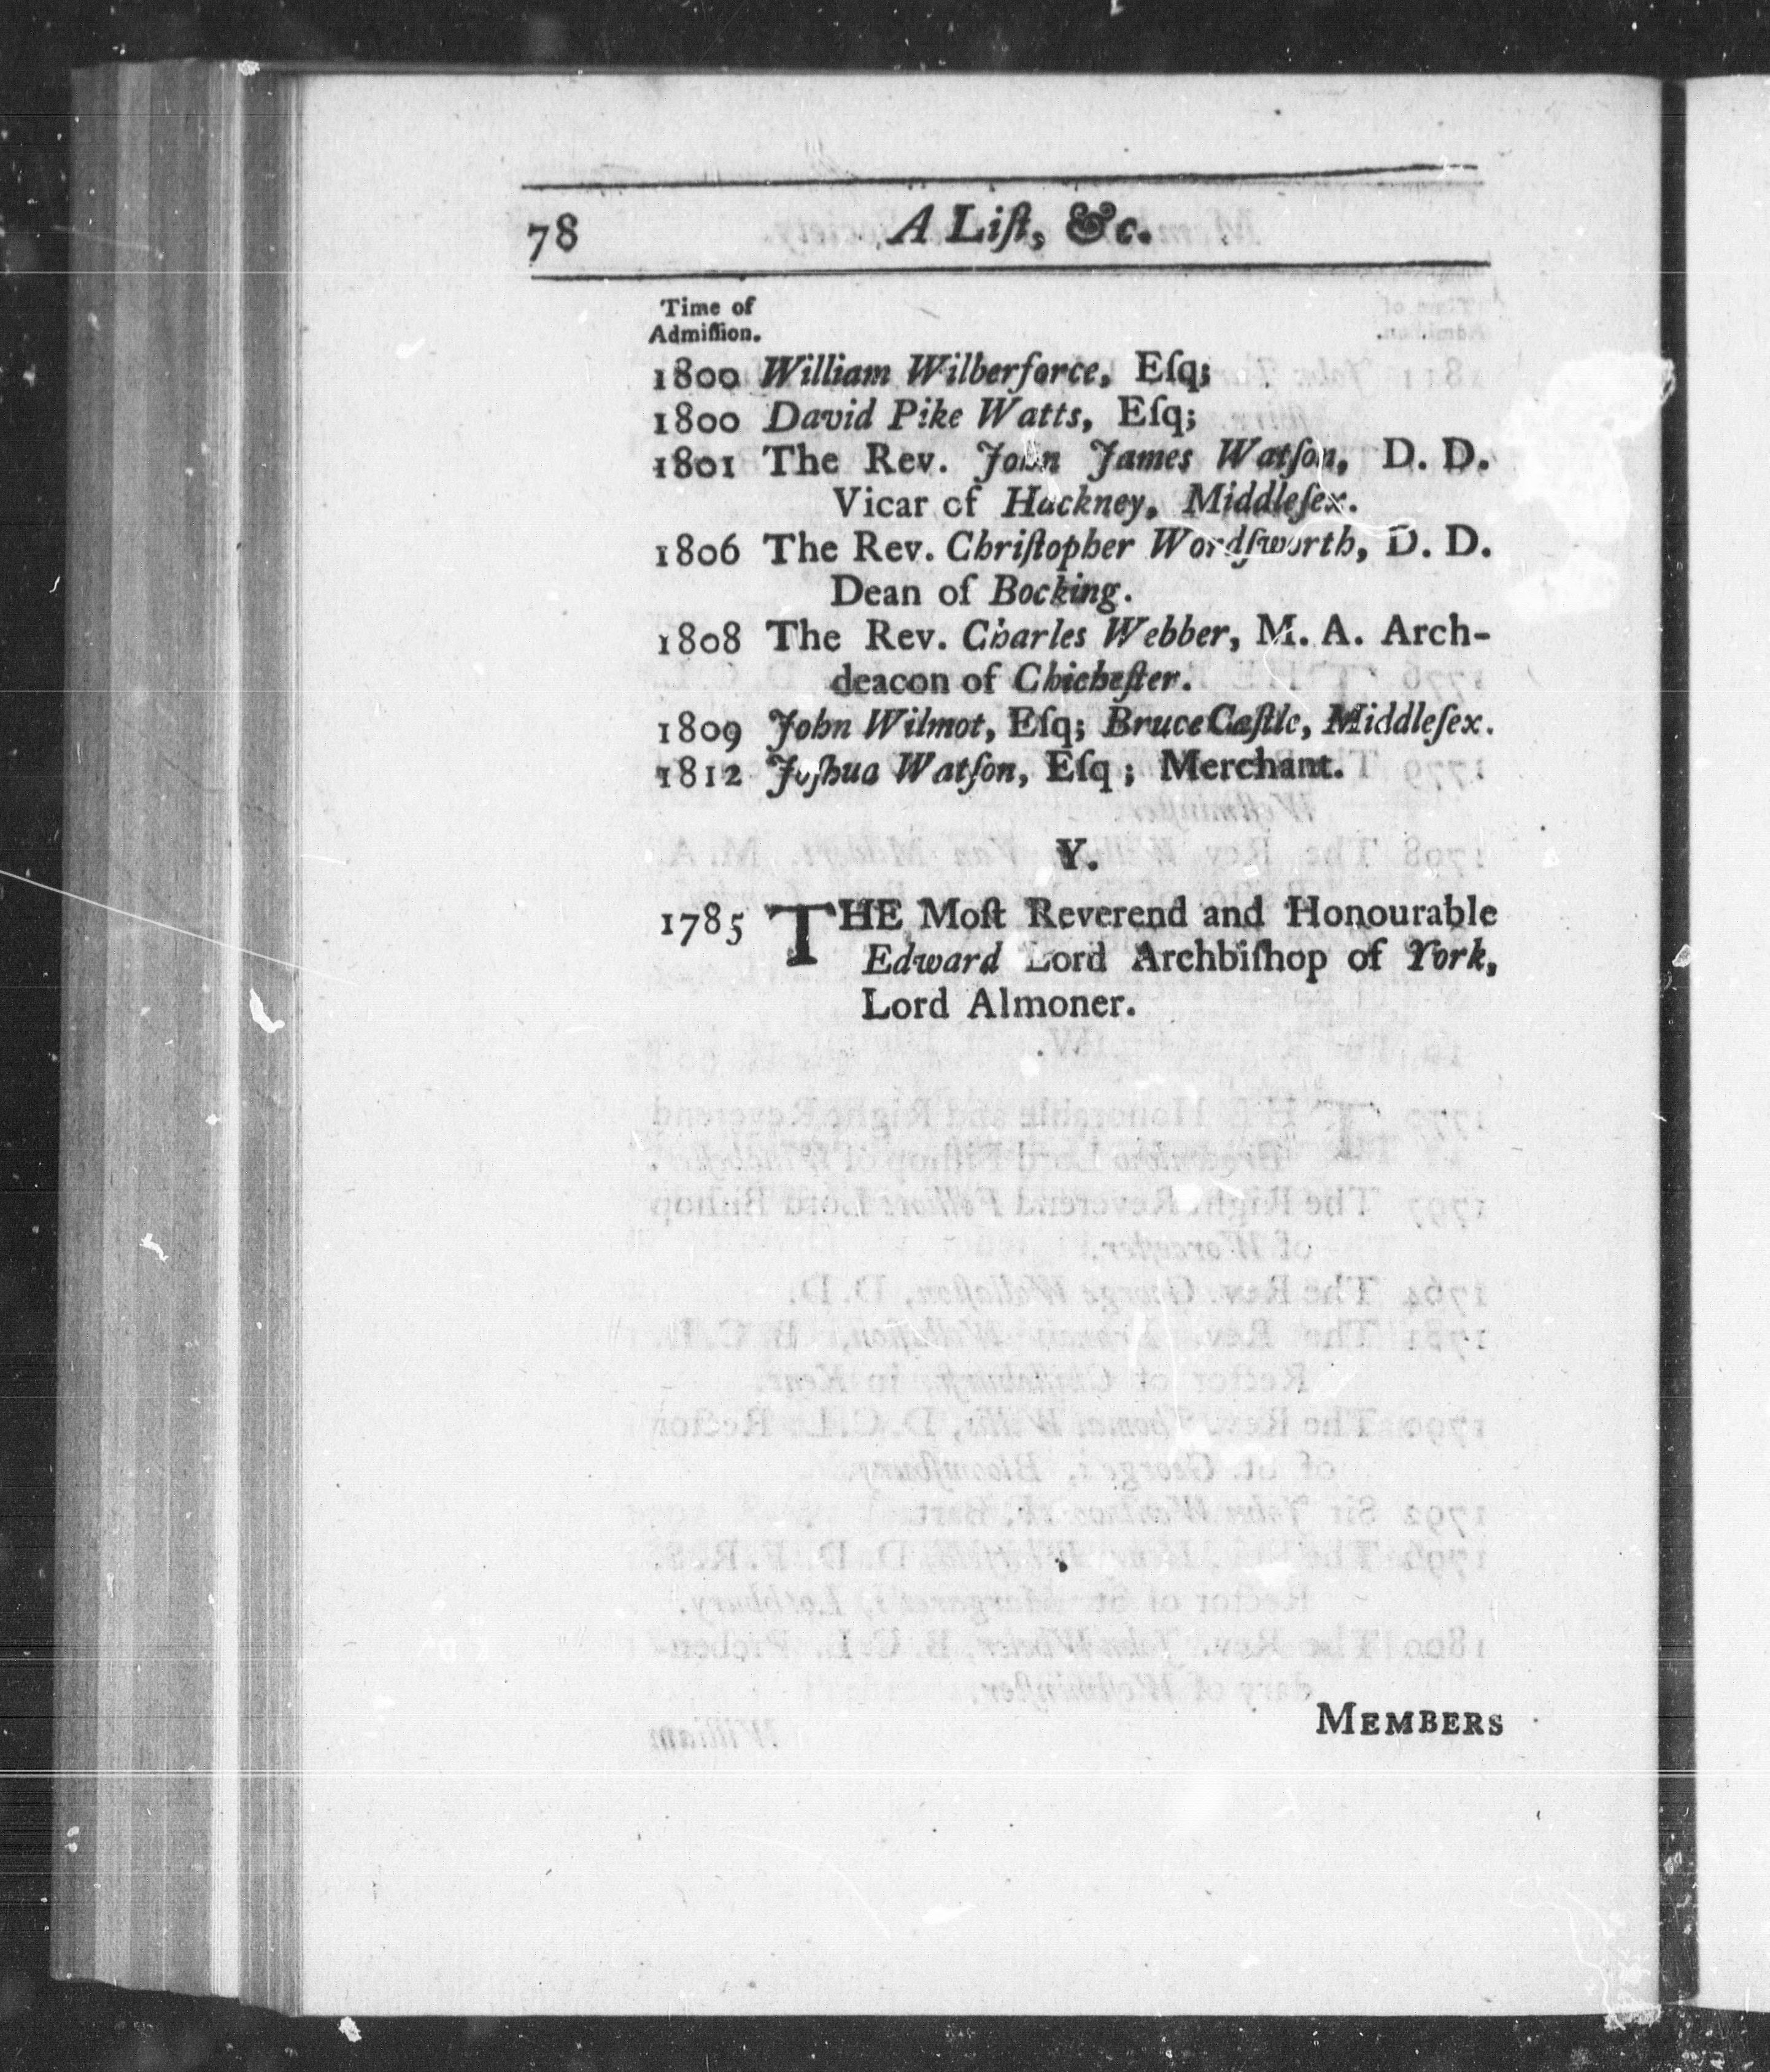 78 A Liſt, &c.
Time of
Admiſſion.
1800 William Wilberforce, Eſq;
1800 David Pike Watts, Eſq;
1801 The Rev. John James Watſon, D. D.
Vicar of Hackney, Middleſex.
1806 The Rev. Chriſtopher Wordſworth, D. D.
Dean of Bocking.
1808 The Rev. Charles Webber, M. A. Arch-
deacon of Chicheſter.
1809 John Wilmot, Eſq; Bruce Caſtle, Middleſex.
1812 Joſhua Watſon, Eſq; Merchant.
Y.
1785 THE Moſt Reverend and Honourable
Edward Lord Archbiſhop of York,
Lord Almoner.
MEMBERS